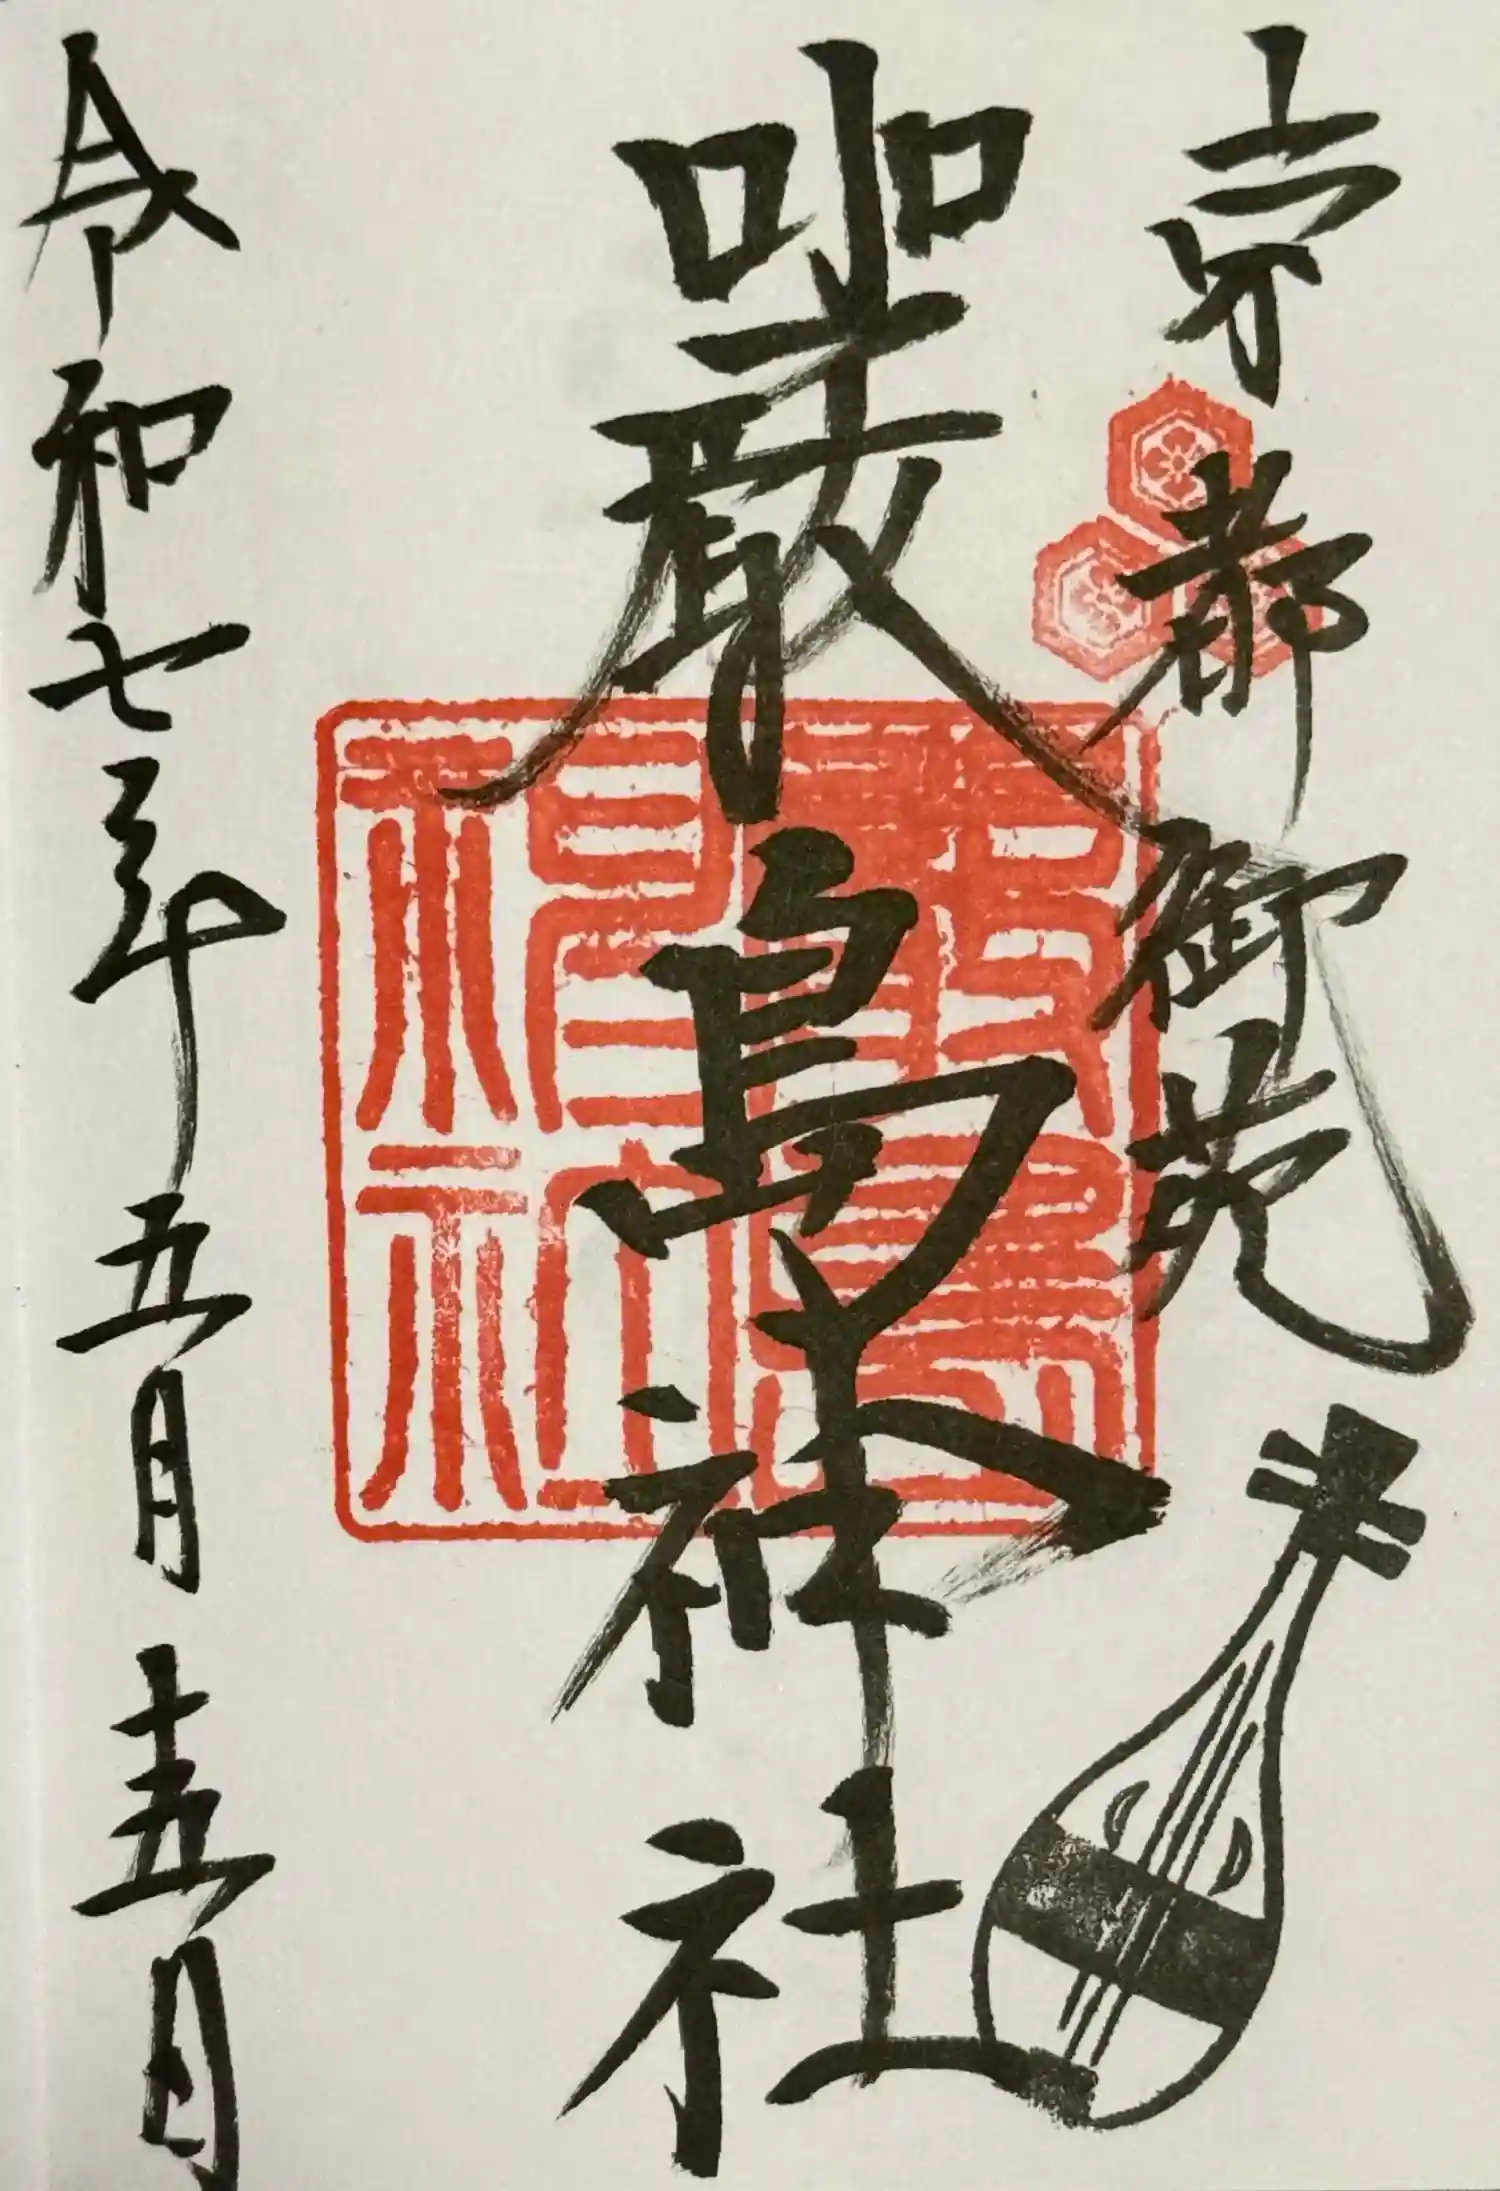 京都御苑
嚴島神社
令和七年五月十五日
嚴島神社